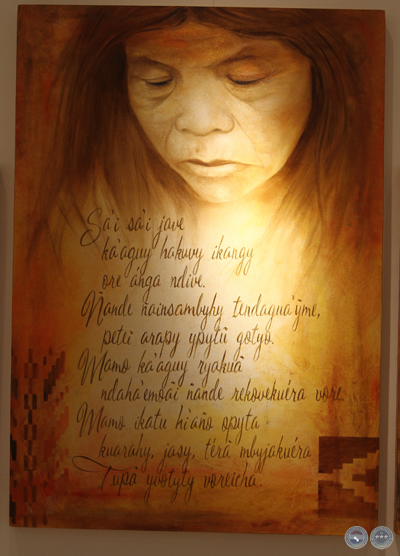 Sa'i sa'i jave
ka'aguy hakuvy ikangy
ore ánga ndive.
Ñande ñainsambyhy tendagua'ỹme,
peteĩ arapy ypytũ gotyo.
Mamo ka'aguy ryakuã
ndaha'emoãi ñande rekovekuéra vore.
Mamo ikatu hi'año opyta
kuarahy, jasy, térã mbyjakuéra
Tupã yvotyty voreicha.